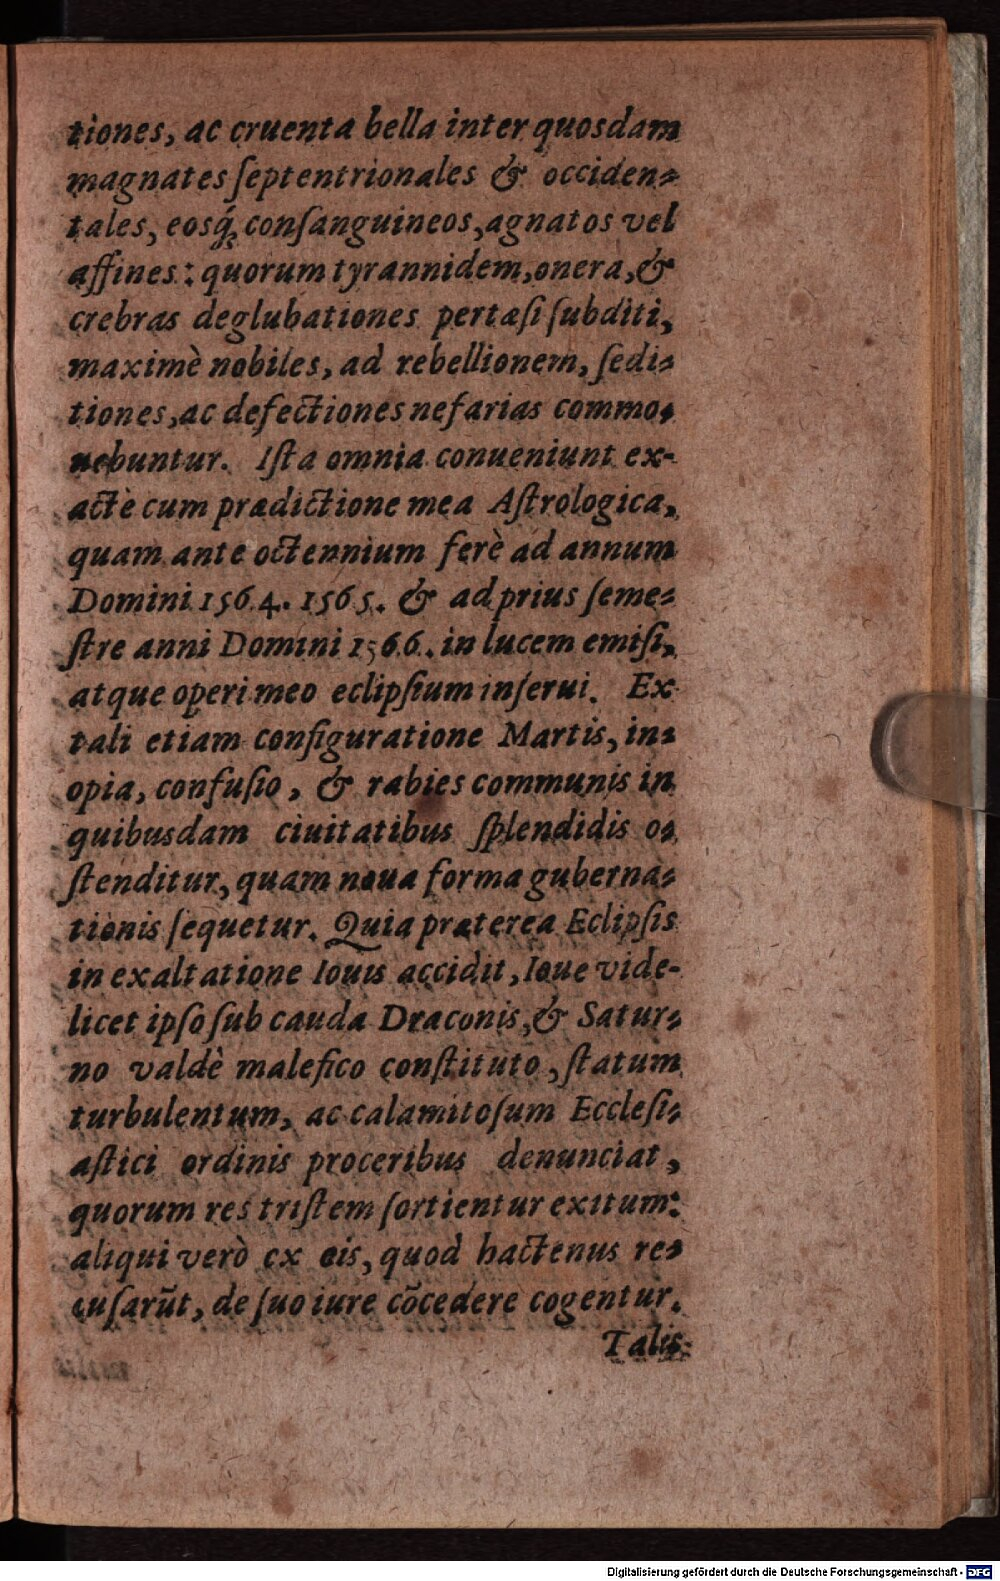 tiones, ac cruenta bella inter quosdam
magnates ſeptentrionales & occiden⸗
tales, eosq́; conſanguineos, agnatos vel
affines: quorum tyrannidem, onera, &
crebras deglubationes pertæſi ſubditi,
maximè nobiles, ad rebellionem, ſedi⸗
tiones, ac defectiones nefarias commo⸗
uebuntur. Iſta omnia conueniunt ex-
actè cum prædictione mea Aſtrologica,
quam ante octennium ferè ad annum
Domini 1564. 1565. & ad prius ſeme⸗
ſtre anni Domini 1566. in lucem emiſi,
atque operi meo eclipſium inſerui. Ex
tali etiam configuratione Martis, in⸗
opia, confuſio, & rabies communis in
quibusdam ciuitatibus ſplendidis o⸗
ſtenditur, quam noua forma guberna⸗
tionis ſequetur. Quia præterea Eclipſis
in exaltatione Iouis accidit, Ioue vide-
licet ipſo ſub cauda Draconis, & Satur⸗
no valdè malefico conſtituto, ſtatum
turbulentum, ac calamitoſum Eccleſi⸗
aſtici ordinis proceribus denunciat,
quorum res triſtem ſortientur exitum:
aliqui verò ex eis, quod hactenus re⸗
cuſarūt, de ſuo iure cōcedere cogentur.
Talis
Digitalisierung gefördert durch die Deutsche Forschungsgemeinschaft - DFG